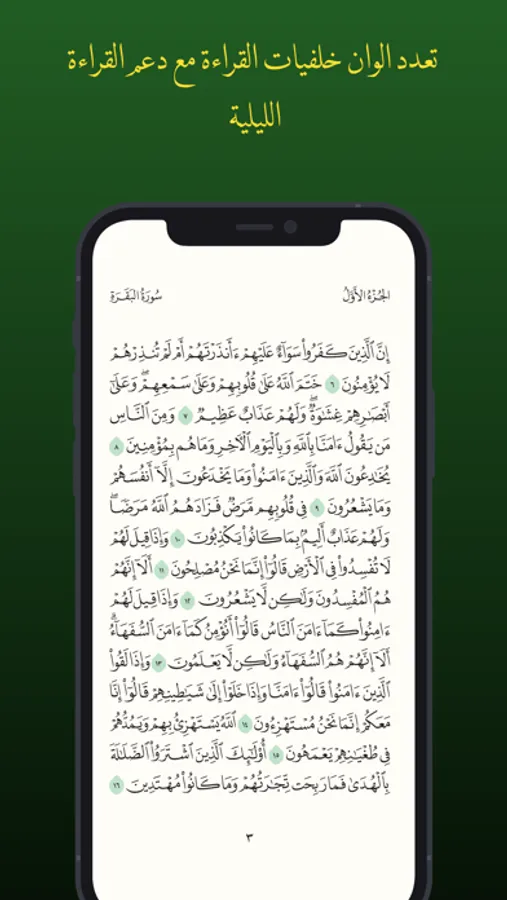 تعدد الوان خلفيات القراءة مع دعم القراءة
الليلية
الجُزْءُ الأَوَّلُ
سُورَةُ البَقَرَةِ
إِنَّ ٱلَّذِينَ كَفَرُوا۟ سَوَآءٌ عَلَيْهِمْ ءَأَنذَرْتَهُمْ أَمْ لَمْ تُنذِرْهُمْ
لَا يُؤْمِنُونَ ٦ خَتَمَ ٱللَّهُ عَلَىٰ قُلُوبِهِمْ وَعَلَىٰ سَمْعِهِمْ ۖ وَعَلَىٰٓ
أَبْصَـٰرِهِمْ غِشَـٰوَةٌ ۖ وَلَهُمْ عَذَابٌ عَظِيمٌ ٧ وَمِنَ ٱلنَّاسِ
مَن يَقُولُ ءَامَنَّا بِٱللَّهِ وَبِٱلْيَوْمِ ٱلْـَٔاخِرِ وَمَا هُم بِمُؤْمِنِينَ ٨
يُخَـٰدِعُونَ ٱللَّهَ وَٱلَّذِينَ ءَامَنُوا۟ وَمَا يَخْدَعُونَ إِلَّآ أَنفُسَهُمْ
وَمَا يَشْعُرُونَ ٩ فِى قُلُوبِهِم مَّرَضٌ فَزَادَهُمُ ٱللَّهُ مَرَضًا ۖ
وَلَهُمْ عَذَابٌ أَلِيمٌۢ بِمَا كَانُوا۟ يَكْذِبُونَ ١٠ وَإِذَا قِيلَ لَهُمْ
لَا تُفْسِدُوا۟ فِى ٱلْأَرْضِ قَالُوٓا۟ إِنَّمَا نَحْنُ مُصْلِحُونَ ١١ أَلَآ إِنَّهُمْ
هُمُ ٱلْمُفْسِدُونَ وَلَـٰكِن لَّا يَشْعُرُونَ ١٢ وَإِذَا قِيلَ لَهُمْ
ءَامِنُوا۟ كَمَآ ءَامَنَ ٱلنَّاسُ قَالُوٓا۟ أَنُؤْمِنُ كَمَآ ءَامَنَ ٱلسُّفَهَآءُ ۗ
أَلَآ إِنَّهُمْ هُمُ ٱلسُّفَهَآءُ وَلَـٰكِن لَّا يَعْلَمُونَ ١٣ وَإِذَا لَقُوا۟
ٱلَّذِينَ ءَامَنُوا۟ قَالُوٓا۟ ءَامَنَّا وَإِذَا خَلَوْا۟ إِلَىٰ شَيَـٰطِينِهِمْ قَالُوٓا۟ إِنَّا
مَعَكُمْ إِنَّمَا نَحْنُ مُسْتَهْزِءُونَ ١٤ ٱللَّهُ يَسْتَهْزِئُ بِهِمْ وَيَمُدُّهُمْ
فِى طُغْيَـٰنِهِمْ يَعْمَهُونَ ١٥ أُو۟لَـٰٓئِكَ ٱلَّذِينَ ٱشْتَرَوُا۟ ٱلضَّلَـٰلَةَ
بِٱلْهُدَىٰ فَمَا رَبِحَت تِّجَـٰرَتُهُمْ وَمَا كَانُوا۟ مُهْتَدِينَ ١٦
٣